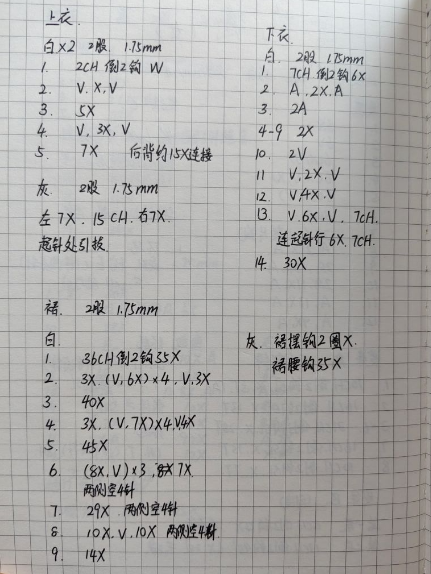 上衣.
白×2 2股 1.75mm
1. 2CH 倒2钩 W
2. V. X, V
3. 5X
4. V, 3X, V
5. 7X 后背约15X连接
灰. 2股 1.75mm
左 7X. 15CH. 右7X.
起针处引拔.
下衣.
白. 2股 1.75mm
1. 7CH 倒2钩6X
2 A, 2X. A
3. 2A
4-9 2X
10. 2V
11 V, 2X. V
12. V, 4X. V
13. V. 6X, V. 7CH.
连起针行 6X. 7CH.
14. 30X
裙. 2股 1.75mm
白.
1. 36CH 倒2钩35X
2. 3X. (V, 6X)×4. V. 3X
3. 40X
4. 3X. (V, 7X)×4, V4X
5. 45X
6. (8X, V)×3, 7X.
两侧空4针
7. 29X 两侧空4针
8 10X. V. 10X 两侧空4
9. 14X
灰. 裙摆钩2圈X.
裙腰钩35X